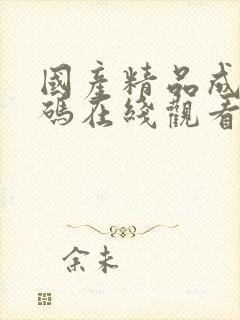 國産精品成
碼在綫觀看
余未